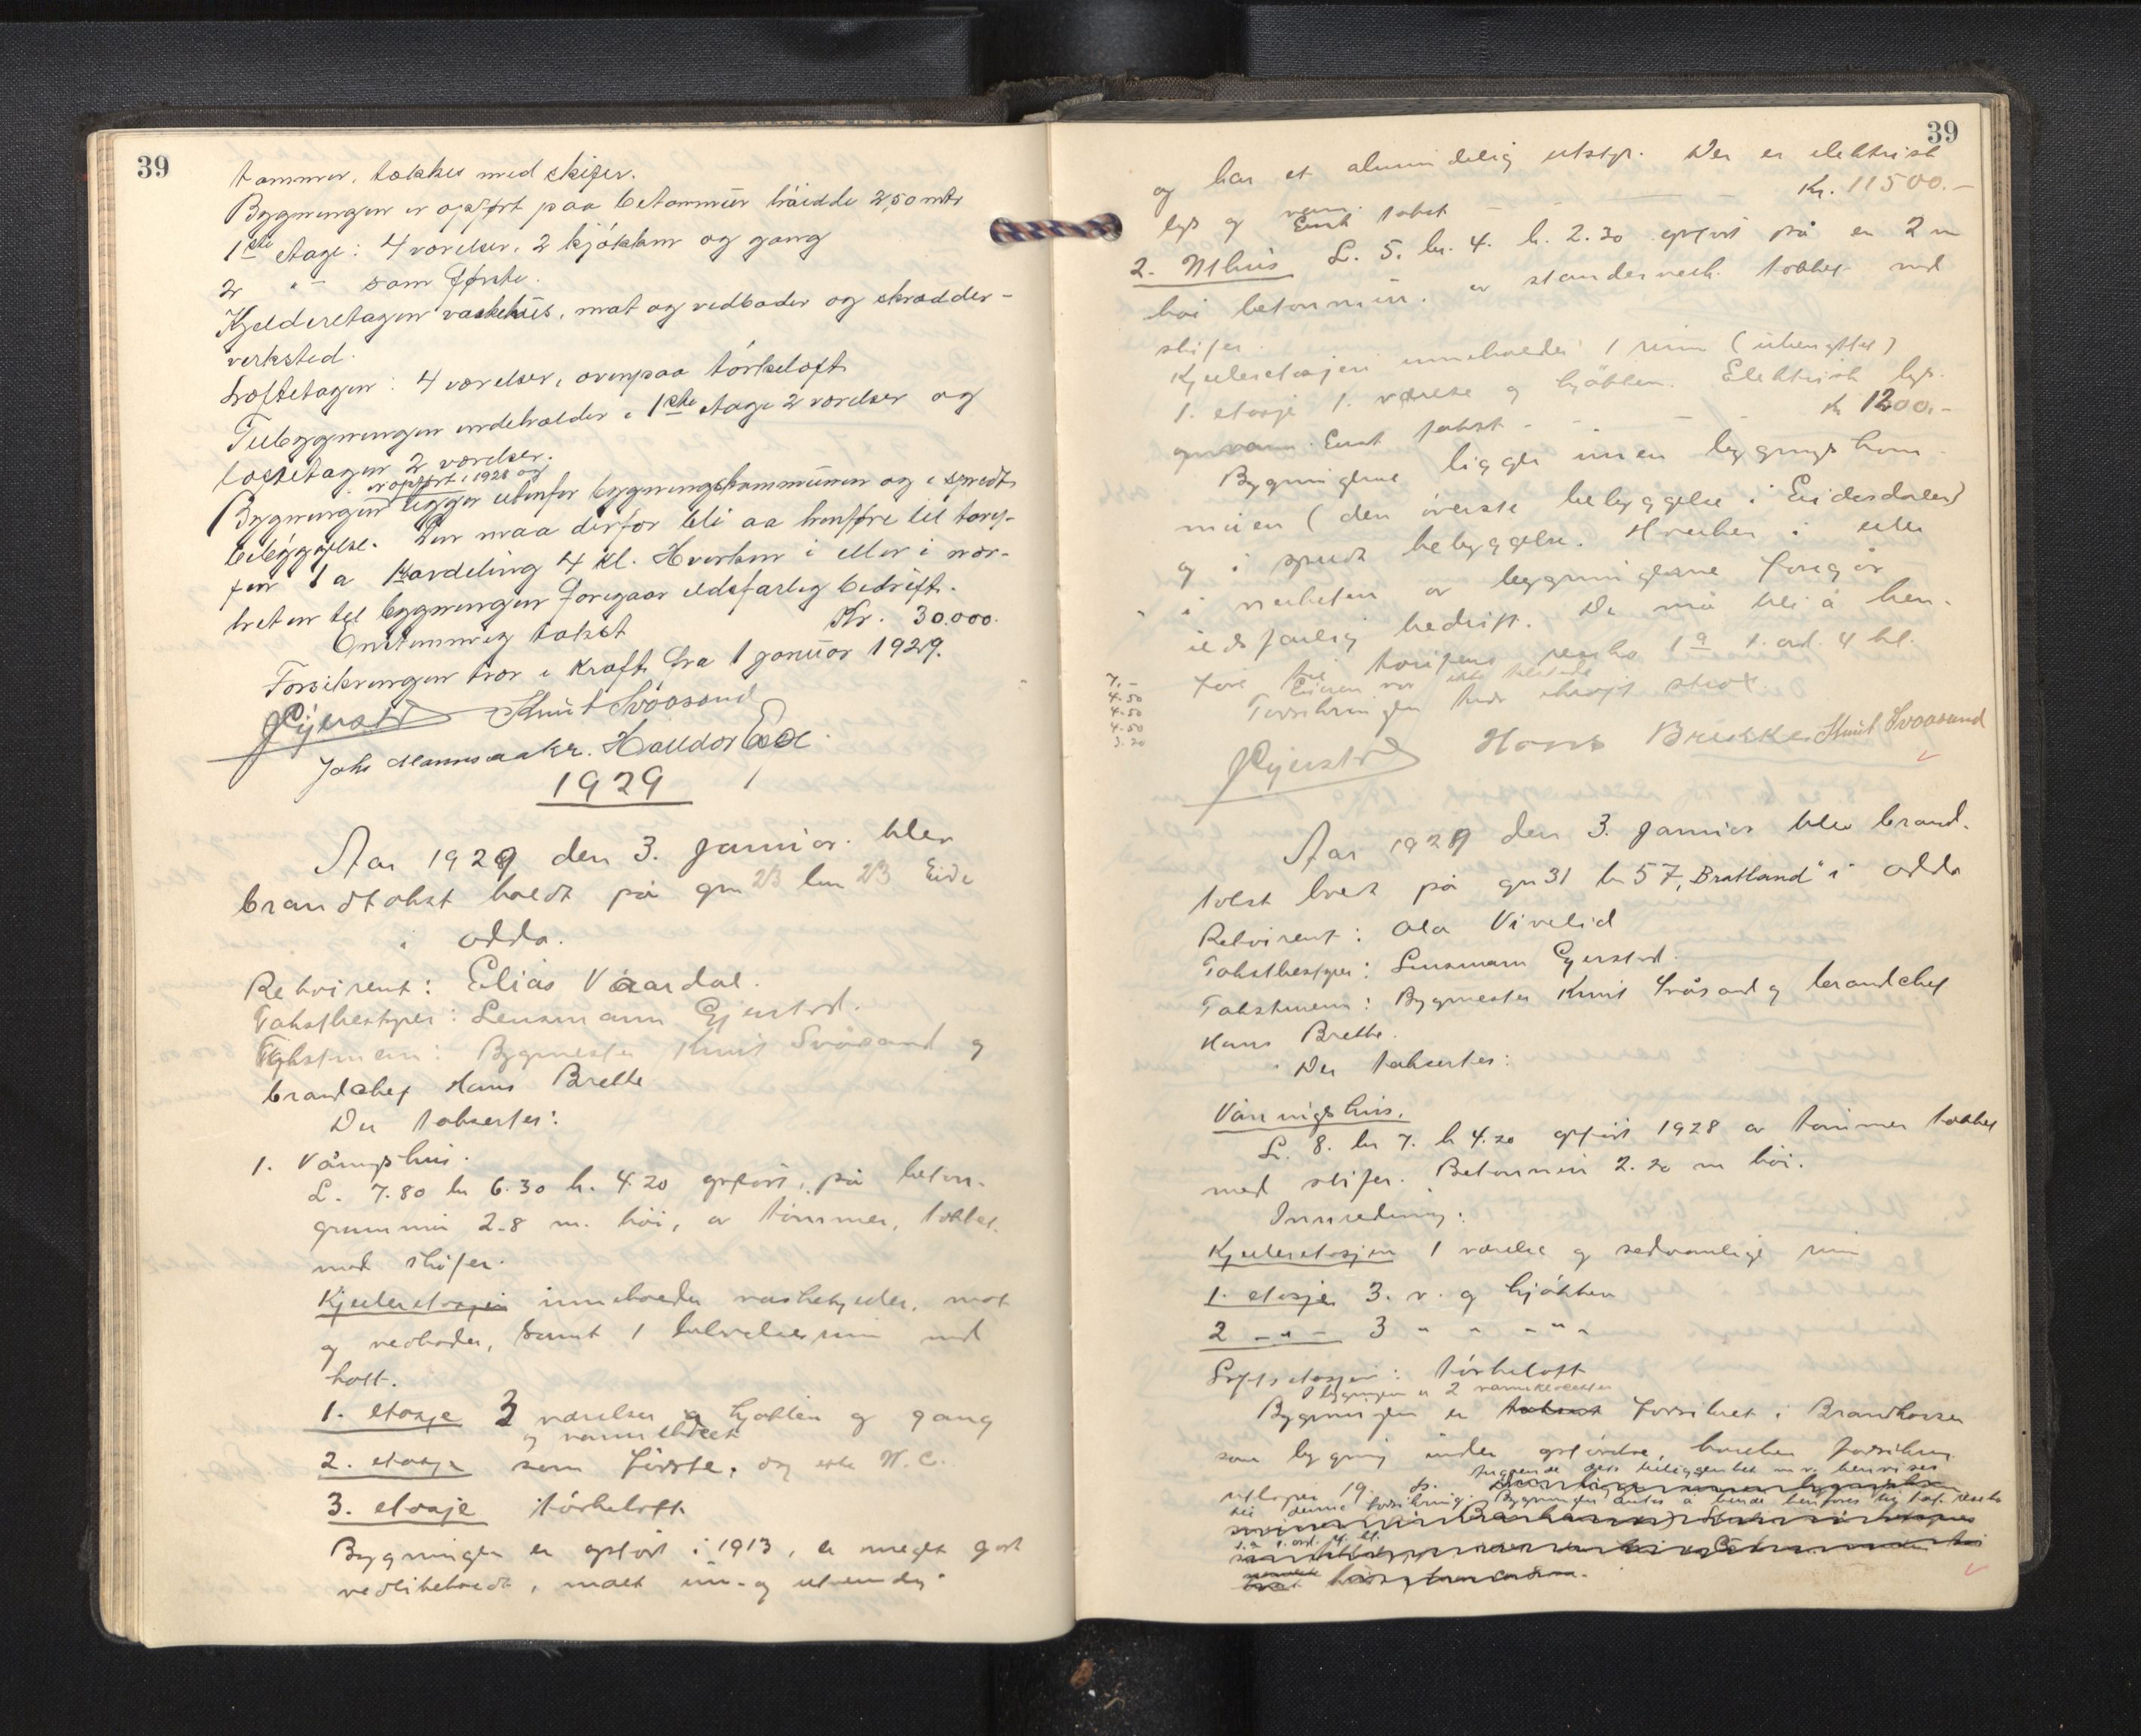 39
tømmer, tækkes med skifer.
Bygningen er opført paa betonmür høidde 2,50 mtr
1ste etage: 4 værelser, 2 kjøkken og gang
2 " - som første.
Kjelderetagen vaskehüs, mat og vedboder og skrædder-
verksted.
Loftetagen: 4 værelser, ovenpaa tørkeloft
Tilbygningen indeholder i 1ste etage 2 værelser og
loftetagen 2 værelser.
er opført i 1928 og
Bygningen ligger utenfor bygningskommünen og i spredt
bebyggelse. Den maa derfor bli aa henføre til tarif-
fen 1 a 1 avdeling 4 kl. Hverken i eller i nær-
heten til bygningen foregaar ildsfarlig bedrift.
Enstemmig takst Kr. 30.000.
Forsikringen trær i kraft fra 1 januar 1929.
Gjerstad Knut Svaasand
Johs Halldor Eide.
1929
Aar 1929 den 3. januar. blev
brandtakst holdt på gnr 23 bnr 23 Eide
i Odda.
Rekvirent: Elias Vaardal.
Takstbestyrer: Lensmann Gjerstad.
Takstmenn: Bygmester Knut Svåsand og
brandchef Hans Brekke
Der taksertes:
1. Våningshus.
L. 7.80 br 6.30 h. 4.20 opført, på beton-
grunnmur 2.8 m. høi, av tømmer, tækket
med skifer.
Kjelleretasjen inneholder vaskekjeller, mat
og vedboder, samt 1 rum med
1. etasje 3 værelser og kjøkken og gang
og vannklosett
2. etasje som første, og W.C.
3. etasje tørkeloft
Bygningen er opført i 1913, er meget godt
vedlikeholdt, malt inn- og utvendig
39
og har et alminnelig utstyr. Der er elektrisk
lys og vann. Enst takst - - - - Kr. 11500.-
2. Uthus L. 5. br. 4. h. 2.30 opført på en 2 m
høi betonmur. av standerverk. tækket med
skifer.
Kjelleretasjen inneholder 1 rum (ubenyttet)
1. etasje 1. værelse og kjøkken. Elektrisk lys.
og vann. Enst takst - - - Kr 1200.-
Bygningene ligger innen bygningskom-
munen (den øverste bebyggelse i Eidesdalen)
og i spredt bebyggelse. Hverken i eller
i nærheten av bygningene foregår
ildsfarlig bedrift. De må bli å hen-
føre til tarifens 1a 1. avd. 4 kl.
Eieren var ikke tilstede
Forsikringen trær i kraft strax.
7.-
4.50
4.50
4.50
3.20
Gjerstad Hans Brekke Knut Svaasand
Aar 1929 den 3. januar blev brand-
takst holdt på gnr 31 br 57, "Bratland" i Odda
Rekvirent: Ola Vivelid
Takstbestyrer: Lensmann Gjerstad.
Takstmenn: Bygmester Knut Svåsand og brandchef
Hans Brekke.
Der takserter:
Våningshus.
L. 8. br 7. h 4.20 opført 1928 av tømmer tækket
med skifer. Betonmur 2.20 m høi.
Innredning:
Kjelleretasjen 1 værelse og sedvanlige rum
1. etasje 3. v. og kjøkken
2 - " - 3 " " - " -
Loftsetasjen: tørkeloft
I bygningen er 2 vannklosetter
Bygningen er takset forsikret i Brandkassen
som bygning under opførelse, hvilken forsikring
utløper 19. ds. Angående dets beliggenhet m.v. henvises
til denne forsikring. Bygningen antas å burde henføres til tar.
1. a 1. avd. 4. kl.